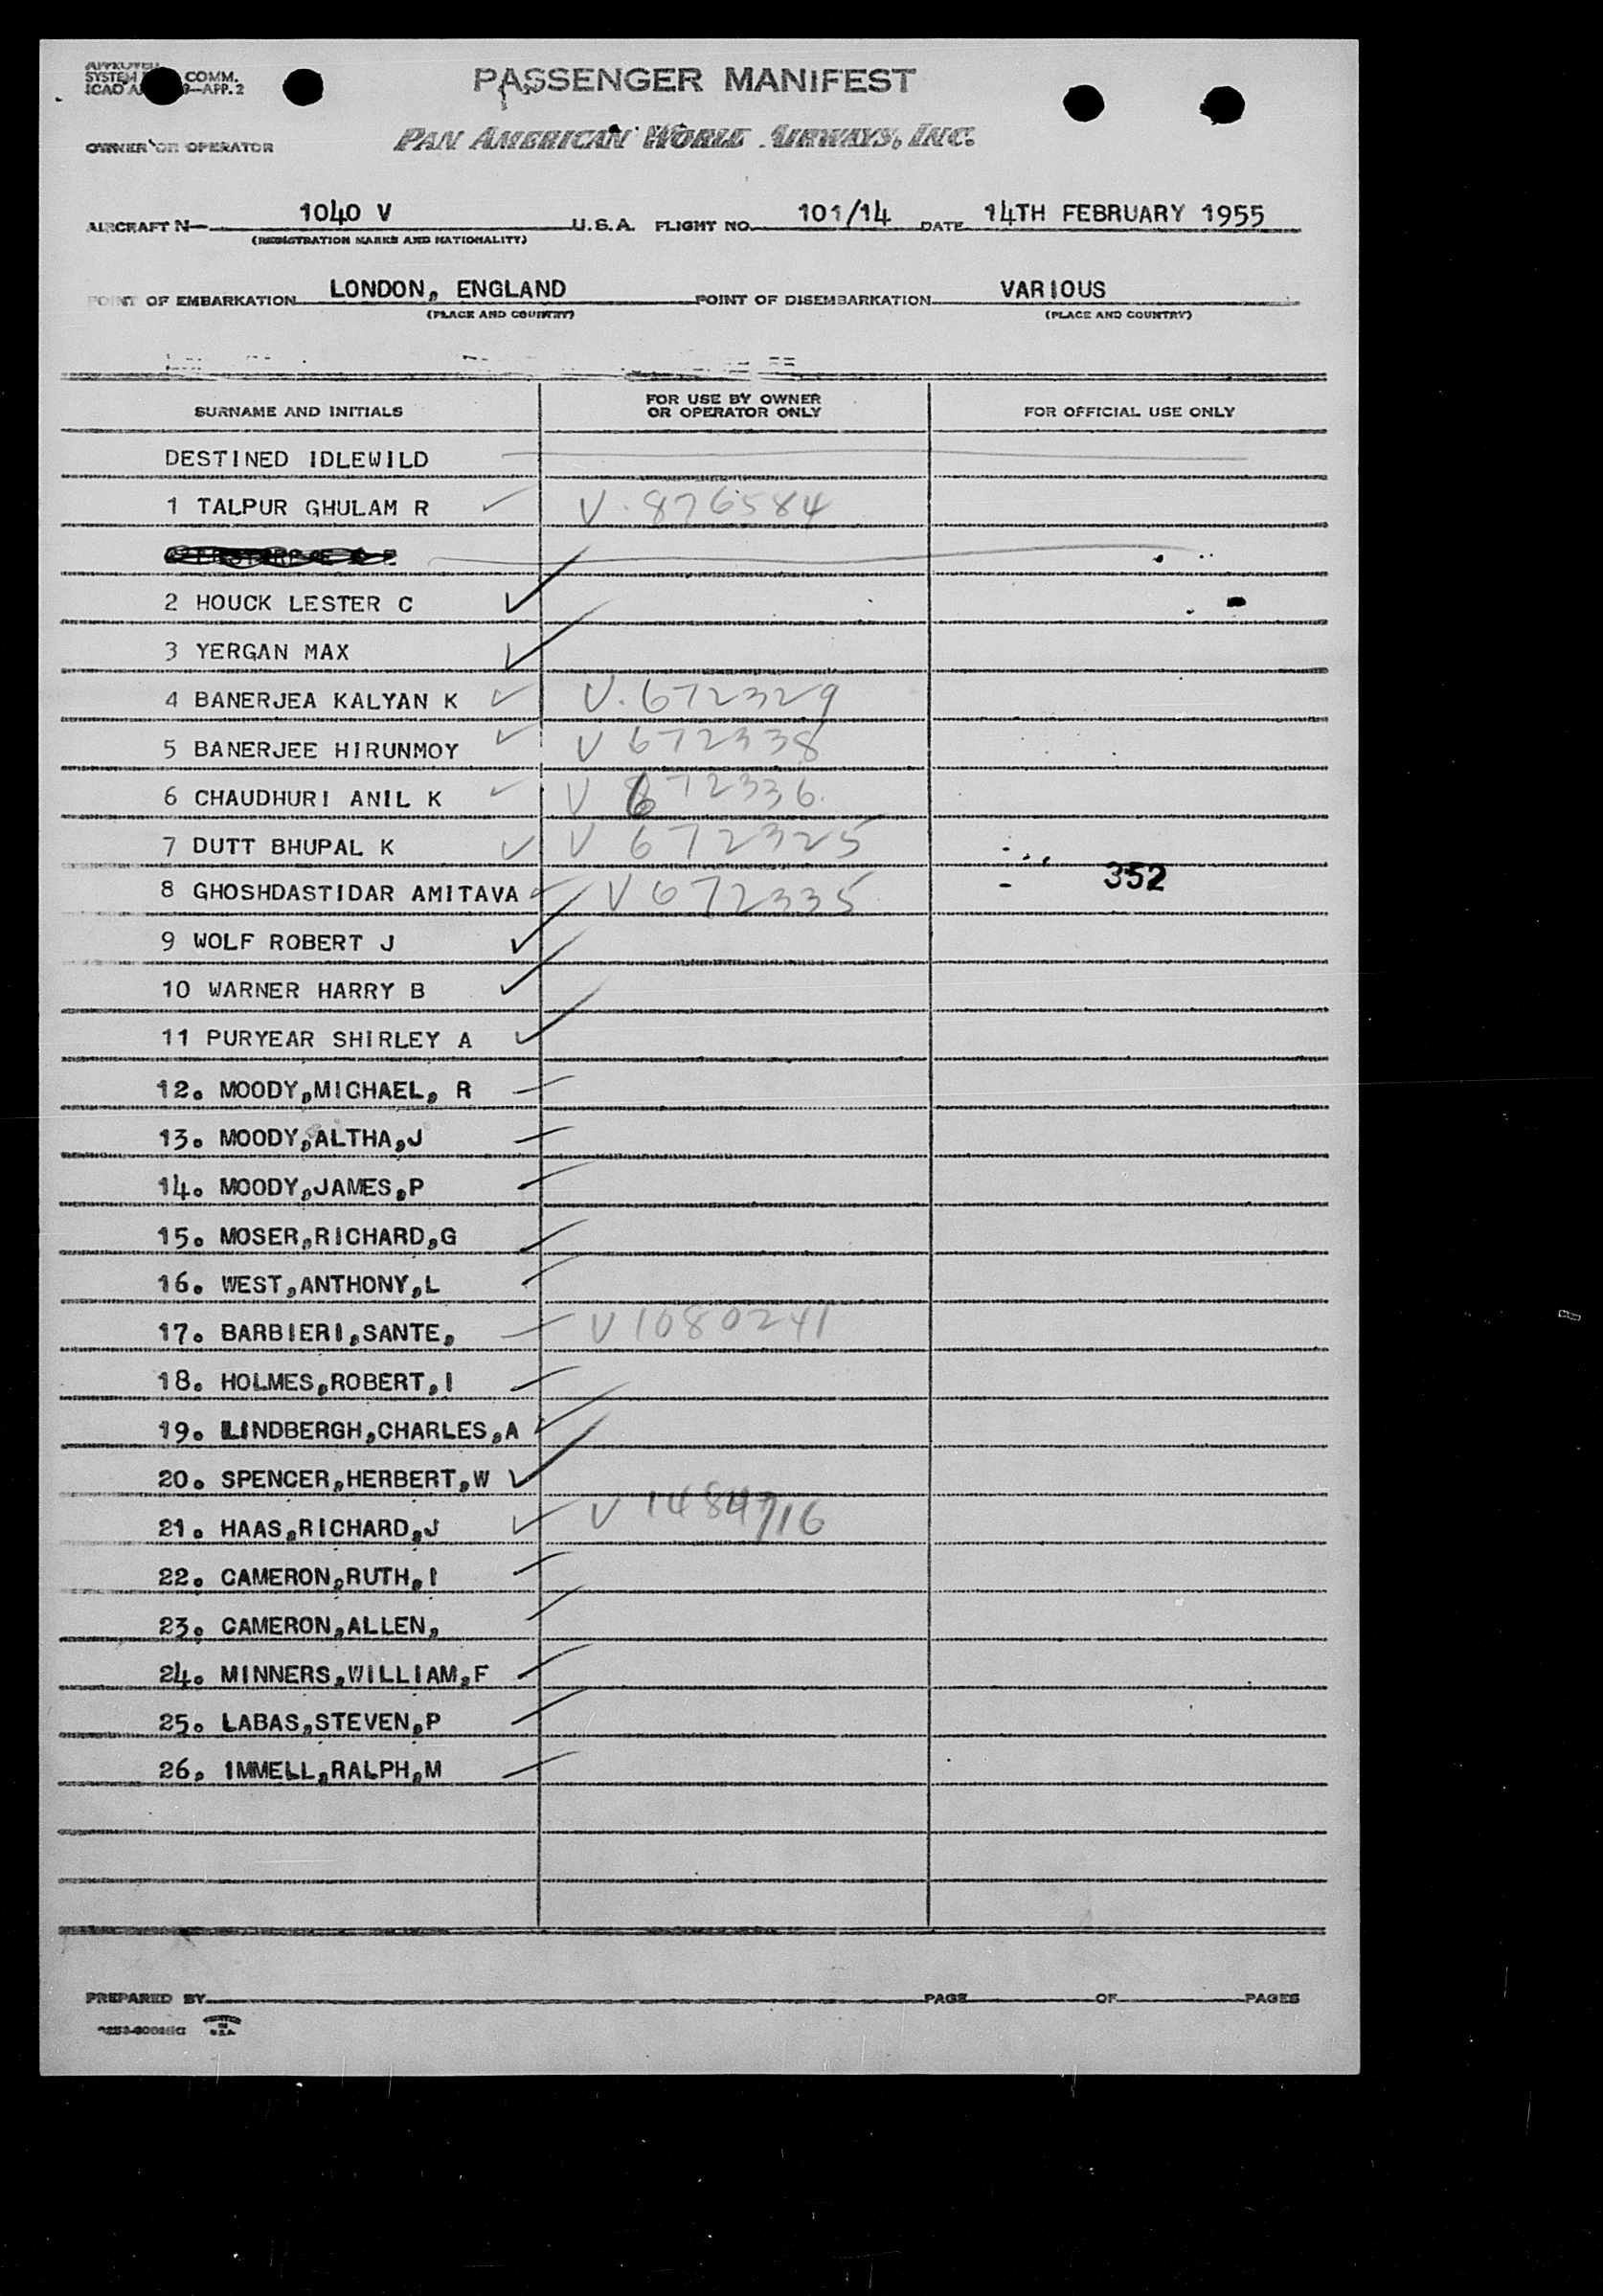 APPROVED
SYSTEM COMM.
ICAO A 9—APP. 2
PASSENGER MANIFEST
OWNER OR OPERATOR
PAN AMERICAN WORLD AIRWAYS, INC.
AIRCRAFT N— 1040 V U. S. A. FLIGHT NO. 101/14 DATE 14TH FEBRUARY 1955
(REGISTRATION MARKS AND NATIONALITY)
POINT OF EMBARKATION LONDON, ENGLAND POINT OF DISEMBARKATION VARIOUS
(PLACE AND COUNTRY) (PLACE AND COUNTRY)
SURNAME AND INITIALS FOR USE BY OWNER OR OPERATOR ONLY FOR OFFICIAL USE ONLY
DESTINED IDLEWILD
1 TALPUR GHULAM R V. 876584
2 HOUCK LESTER C
3 YERGAN MAX
4 BANERJEA KALYAN K V. 672329
5 BANERJEE HIRUNMOY V 672338
6 CHAUDHURI ANIL K V 672336.
7 DUTT BHUPAL K V 672325
352
8 GHOSHDASTIDAR AMITAVA V 672335
9 WOLF ROBERT J
10 WARNER HARRY B
11 PURYEAR SHIRLEY A
12. MOODY,MICHAEL, R
13. MOODY,ALTHA,J
14. MOODY,JAMES,P
15. MOSER,RICHARD,G
16. WEST,ANTHONY,L
17. BARBIERI,SANTE, V 1080241
18. HOLMES,ROBERT,I
19. LINDBERGH,CHARLES,A
20. SPENCER,HERBERT,W
21. HAAS,RICHARD,J V 1484716
22. CAMERON,RUTH,I
23. CAMERON,ALLEN,
24. MINNERS,WILLIAM,F
25. LABAS,STEVEN,P
26. IMMELL,RALPH,M
PREPARED BY PAGE OF PAGES
PRINTED IN U.S.A.